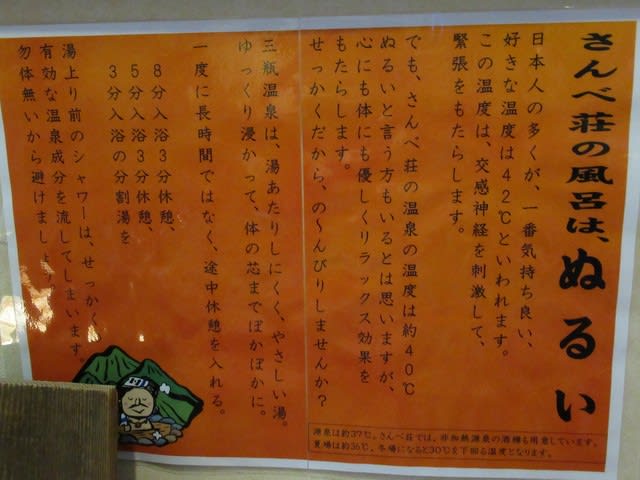 さんべ荘の風呂は、ぬるい
日本人の多くが、一番気持ち良い、
好きな温度は４２℃といわれます。
この温度は、交感神経を刺激して、
緊張をもたらします。
でも、さんべ荘の温泉の温度は約４０℃
ぬるいと言う方もいるとは思いますが、
心にも体にも優しくリラックス効果を
もたらします。
せっかくだから、の〜んびりしませんか？
三瓶温泉は、湯あたりしにくく、やさしい湯。
ゆっくり浸かって、体の芯までぽかぽかに。
一度に長時間ではなく、途中休憩を入れる。
８分入浴３分休憩、
５分入浴３分休憩、
３分入浴の分割湯を
湯上り前のシャワーは、せっかく
有効な温泉成分を流してしまいます。
勿体無いから避けましょう
源泉は約37℃。さんべ荘では、非加熱源泉の酒樽も用意しています。
夏場は約36℃、冬場になると30℃を下回る温度となります。